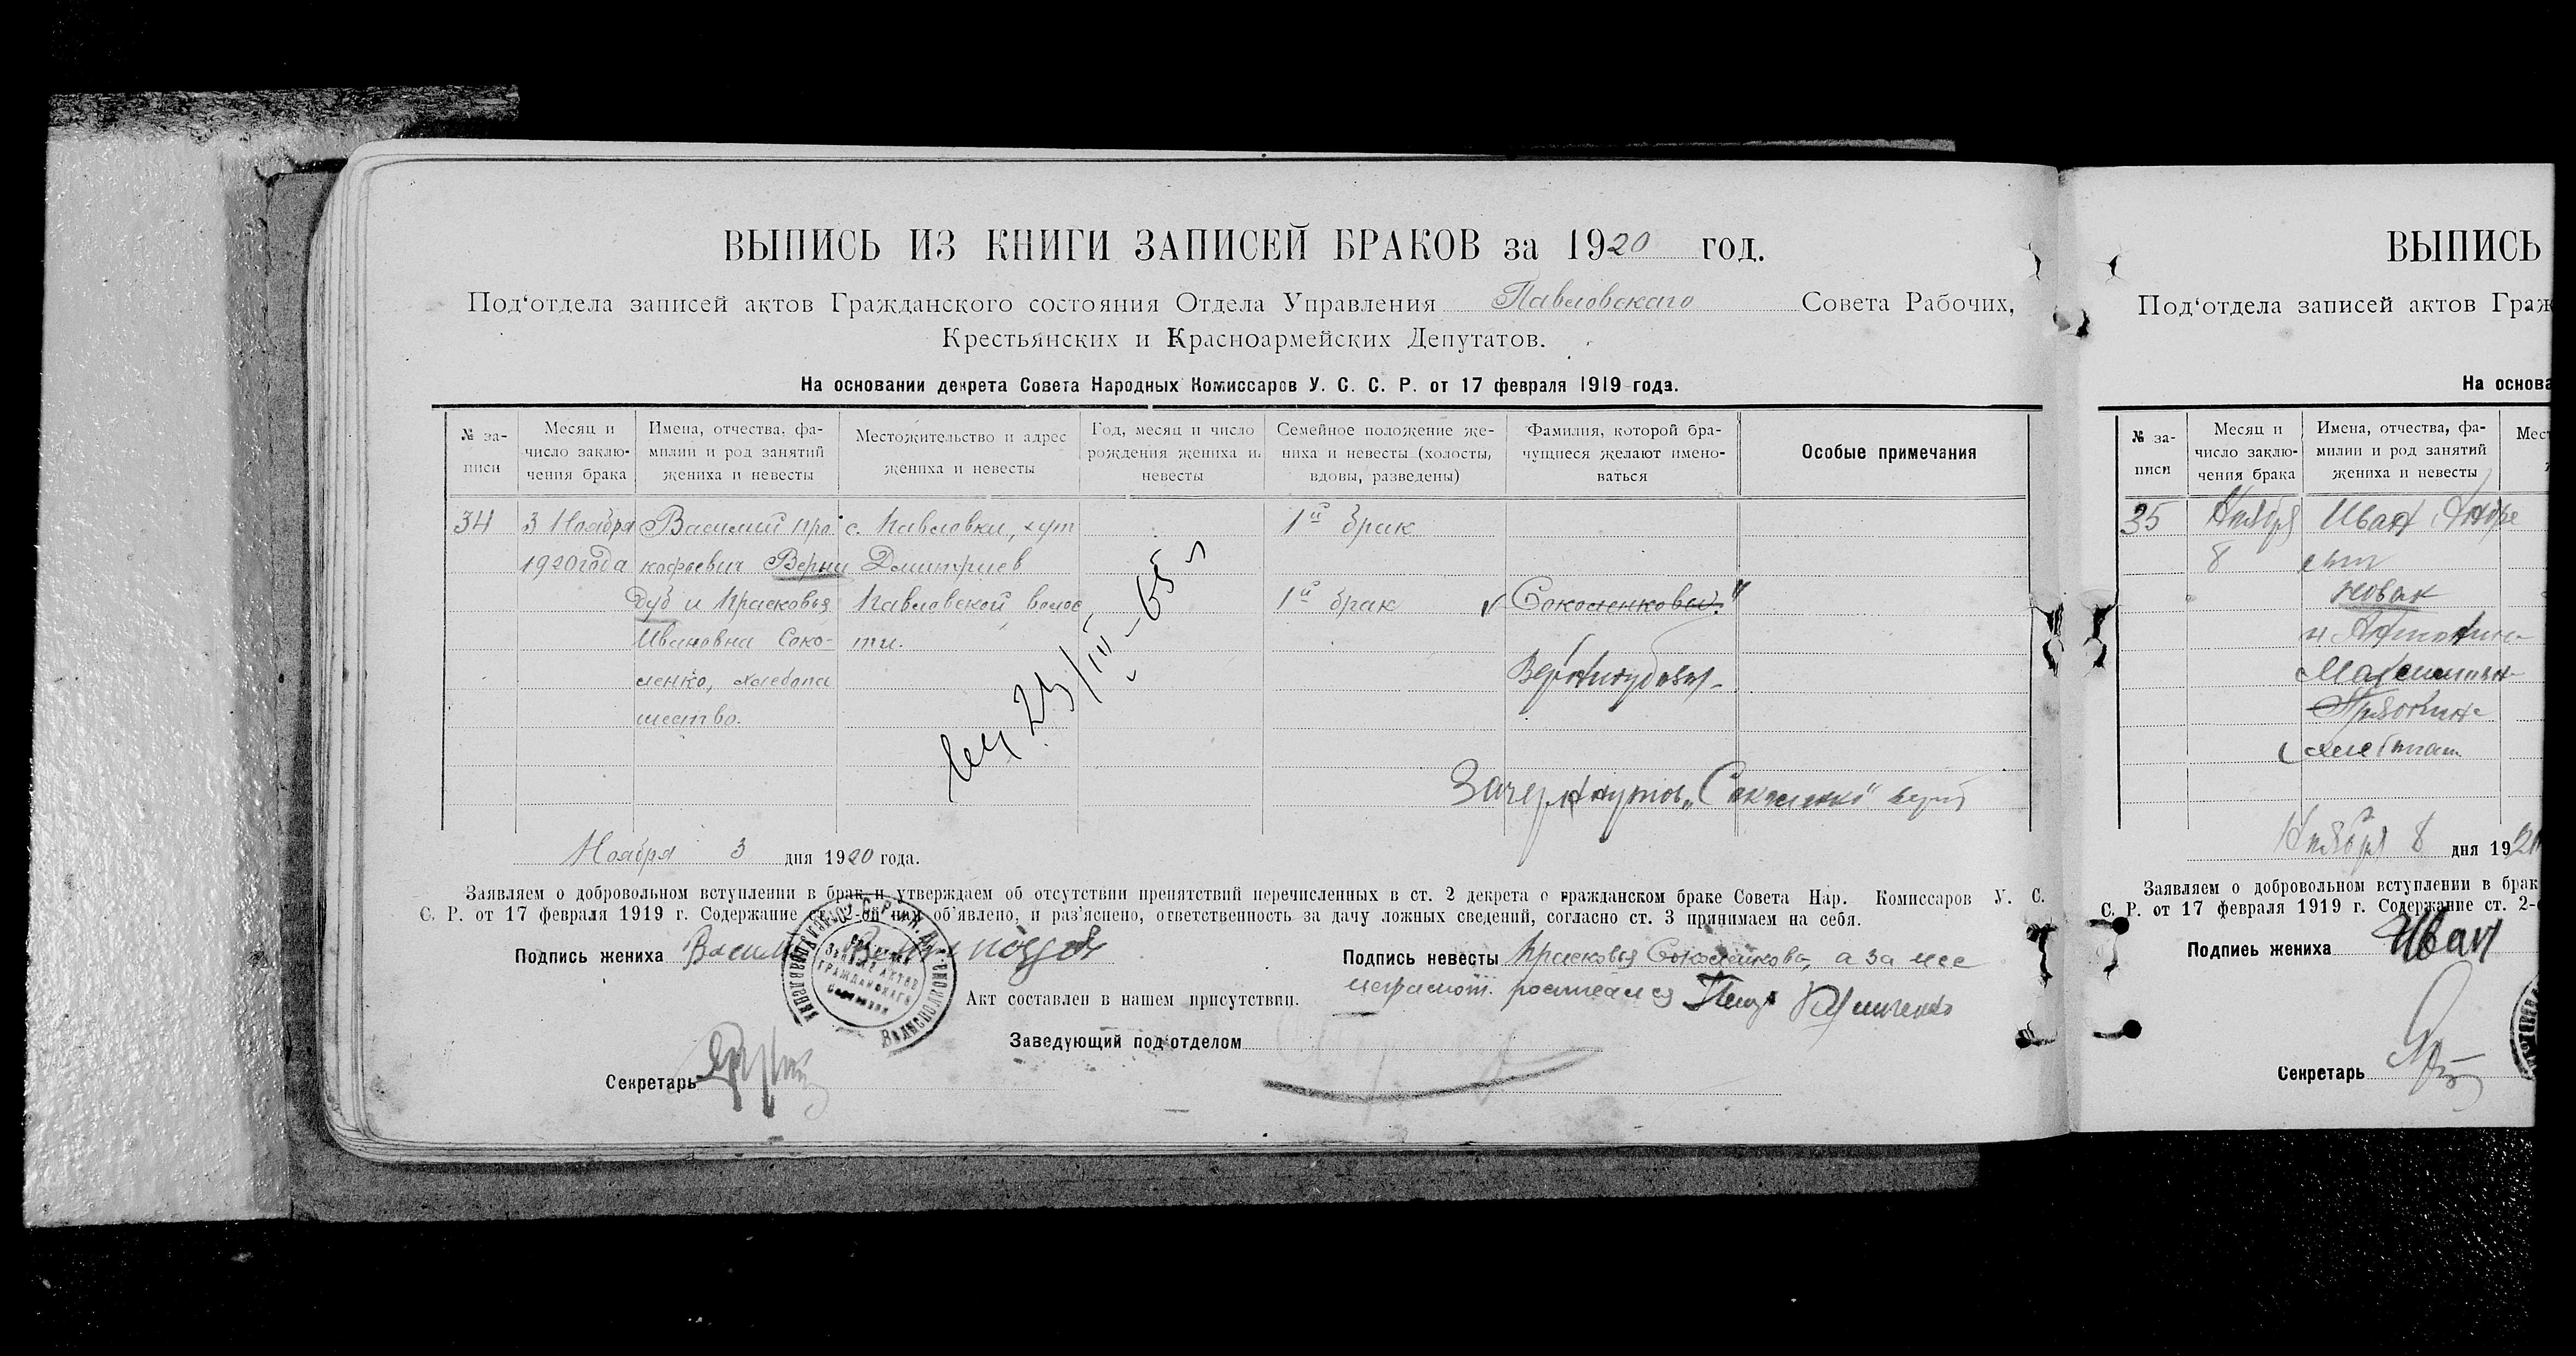 ВЫПИСЬ ИЗ КНИГИ ЗАПИСЕЙ БРАКОВ за 1920 год.
Под‘отдела записей актов Гражданского состояния Отдела Управления Павловскаго Совета Рабочих,
Крестьянских и Красноармейских Депутатов.
На основании декрета Совета Народных Комиссаров У. С. С. Р. от 17 февраля 1919 года.
№ за-
писи
Месяц и
число заклю-
чения брака
Имена, отчества, фа-
милии и род занятий
жениха и невесты
Местожительство и адрес
жениха и невесты
Год, месяц и число
рождения жениха и
невесты
Семейное положение же-
ниха и невесты (холосты,
вдовы, разведены)
Фамилия, которой бра-
чущиеся желают имено-
ваться
Особые примечания
34 3 Ноября Василий Про с. Павловки, хут 1й брак
1920 года кофьевич Верни Дмитриев
дуб и Прасковья Павловской волос 1й брак Соколенковы
Ивановна Соко- ти.
ленко, хлебопа
шество.
23/III-65
Зачеркнутов „Соколенко“
Ноября 3 дня 1920 года.
Заявляем о добровольном вступлении в брак и утверждаем об отсутствии препятствий перечисленных в ст. 2 декрета о гражданском браке Совета Нар. Комиссаров У. С.
С. Р. от 17 февраля 1919 г. Содержание ст. 2-ой нам об‘явлено, и раз‘яснено, ответственность за дачу ложных сведений, согласно ст. 3 принимаем на себя.
Подпись жениха
Подпись невесты Прасковья Соколенкова, а за нее
неграмот. росписался
Акт составлен в нашем присутствии.
Заведующий под‘отделом
Секретарь
ВЫПИСЬ
Под‘отдела записей актов Граж
На основа
№ за-
писи
Месяц и
число заклю-
чения брака
Имена, отчества, фа-
милии и род занятий
жениха и невесты
Мест
35 Ноября Иван Андре
8 евич
Новак
и
Ноября 8 дня 19
Заявляем о добровольном вступлении в брак
С. Р. от 17 февраля 1919 г. Содержание ст. 2-
Подпись жениха Иван
Секретарь